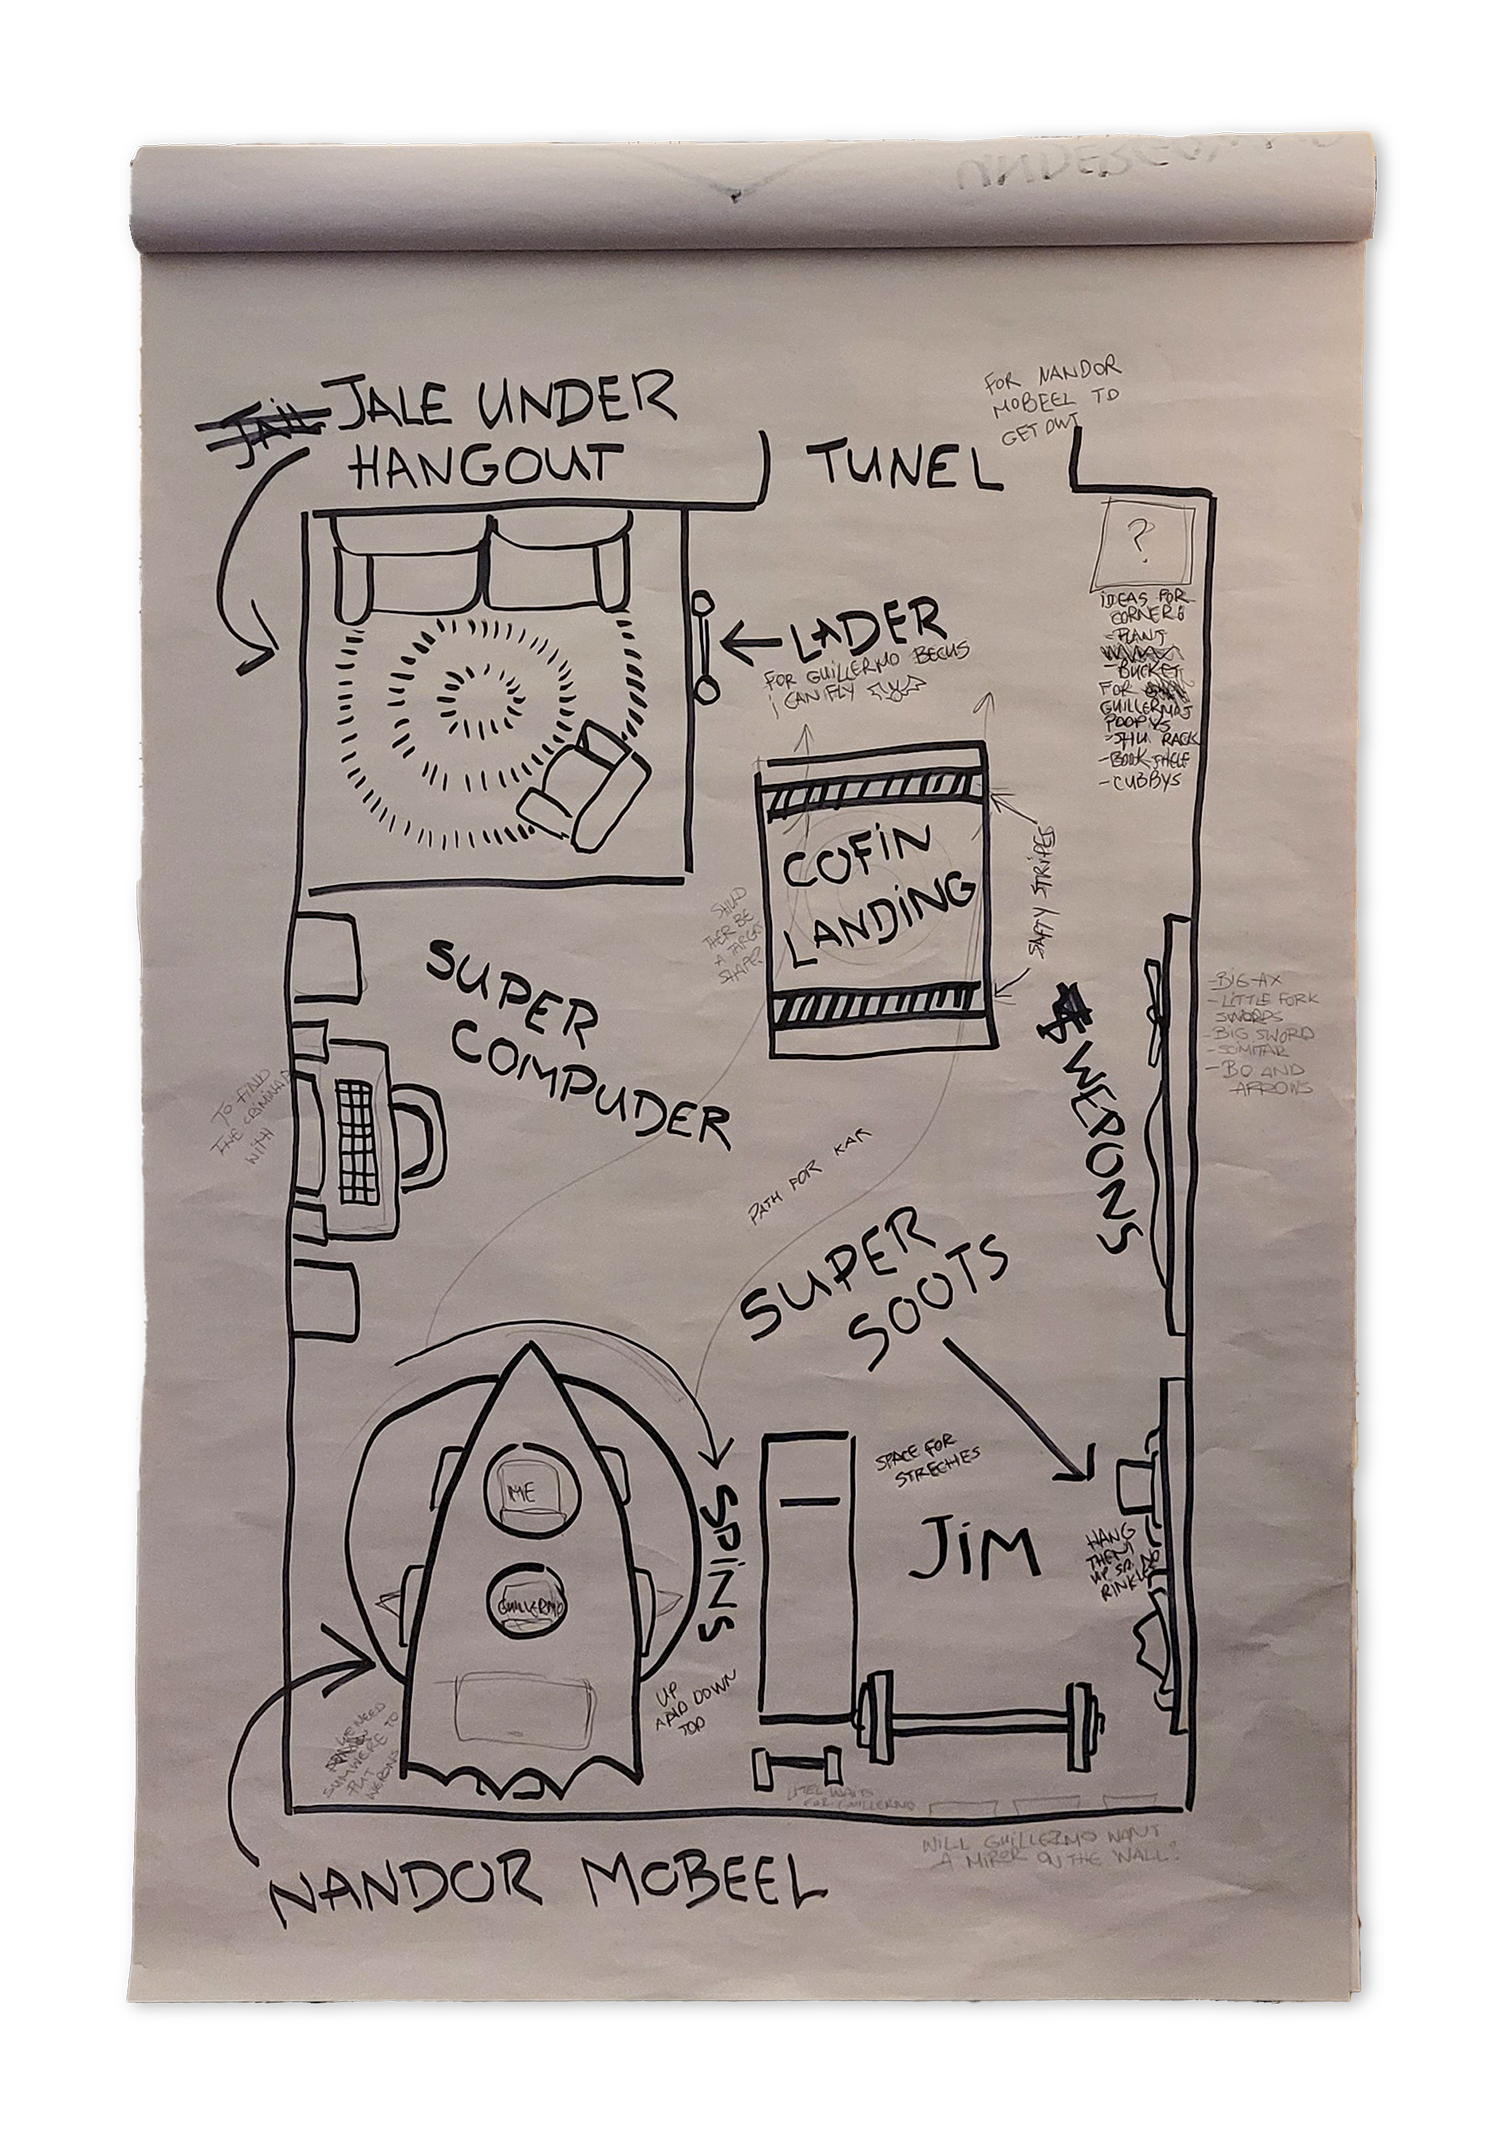 JAIL JALE UNDER
HANGOUT
TUNEL
FOR NANDOR
MOBEEL TO
GET OWT
?
IDEAS FOR
CORNER:
-PLANT
-BUCKET
FOR
GUILLERMOS
POOPYS
-SHU RACK
-BOOK SHELF
-CUBBYS
LADER
FOR GUILLERMO BECUS
I CAN FLY
COFIN
LANDING
SAFTY STRIPES
SHULD
THER BE
A TARGET
SHAPE?
SUPER
COMPUDER
TO FIND
THE CRIMINALS
WITH
WEPONS
-BIG AX
-LITTLE FORK
SWORDS
-BIG SWORD
-SIMITAR
-BO AND
ARROWS
PATH FOR KAR
SUPER
SOOTS
HANG
THEM
UP SO
RINKLES
SPACE FOR
STRECHES
JIM
ME
GUILLERMO
SPINS
UP
AND DOWN
TOO
WE NEED
SUMWERE TO
PUT
WEPONS
LITEL WAITS
FOR GUILLERMO
WILL GUILLERMO WANT
A MIROR ON THE WALL?
NANDOR MOBEEL